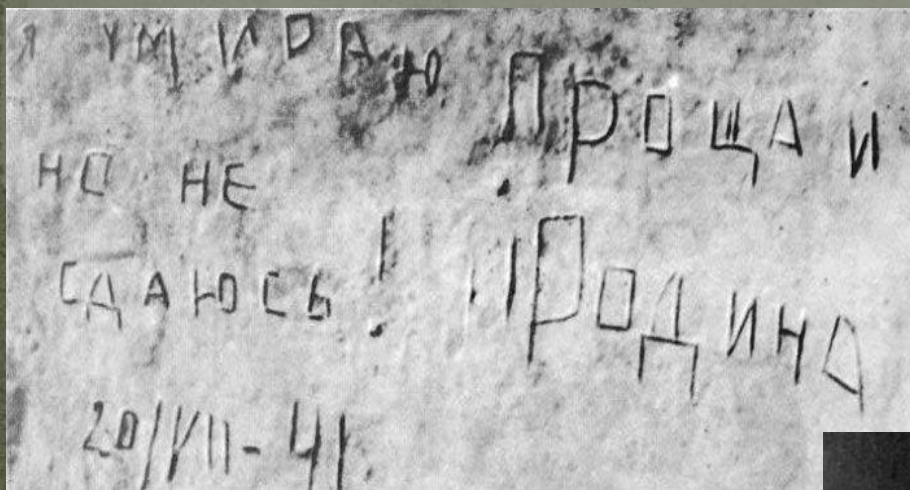 Я УМИРАЮ
НО НЕ
СДАЮСЬ!
ПРОЩАИ
РОДИНА
20/VII-41